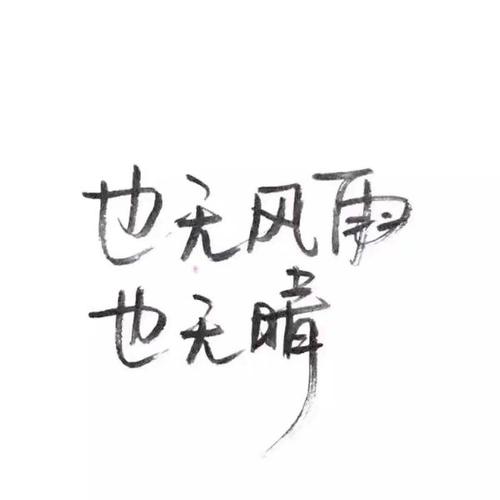 也无风雨
也无晴